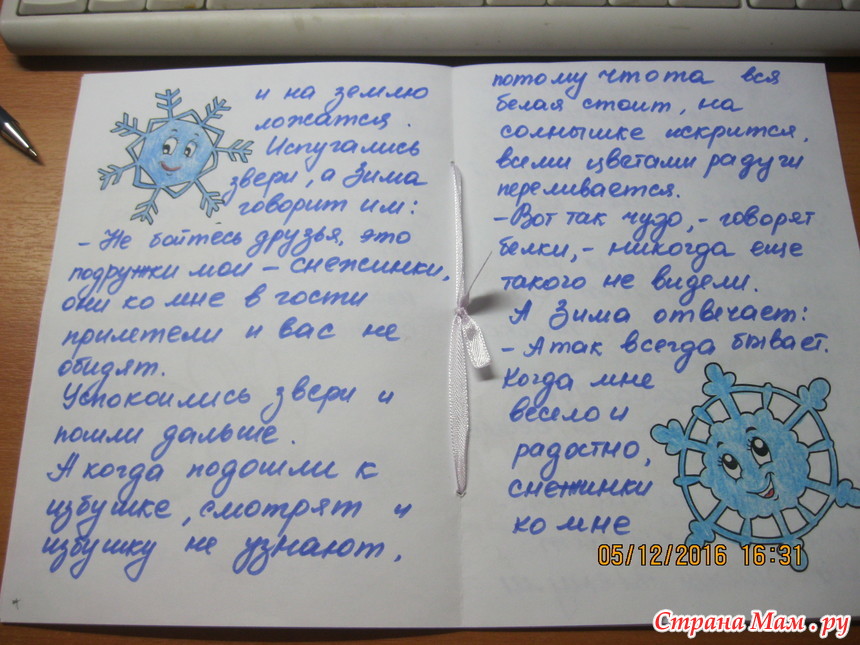 и на землю
ложатся.
Испугались
звери, а Зима
говорит им:
- Не бойтесь друзья, это
подружки мои - снежинки,
они ко мне в гости
прилетели и вас не
обидят.
Успокоились звери и
пошли дальше.
А когда подошли к
избушке, смотрят и
избушку не узнают,
потому что та вся
белая стоит, на
солнышке искрится,
всеми цветами радуги
переливается.
- Вот так чудо, - говорят
белки, - никогда еще
такого не видели.
А Зима отвечает:
- А так всегда бывает.
Когда мне
весело и
радостно,
снежинки
ко мне
05/12/2016 16:31
Страна Мам.ру